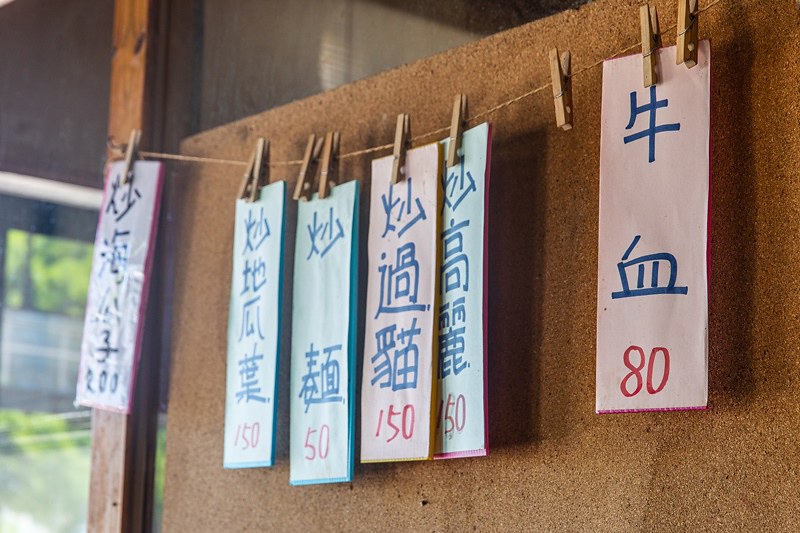 炒海瓜子
200
炒地瓜葉
150
炒麵
50
炒過貓
150
炒高麗
150
牛血
80